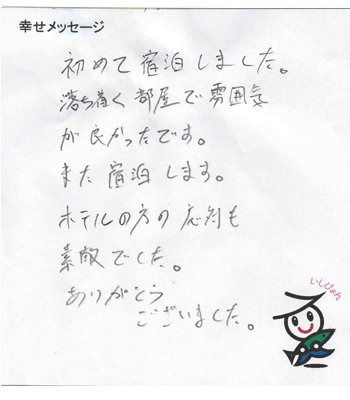 幸せメッセージ
初めて宿泊しました。
落ち着く部屋で雰囲気
が良かったです。
また宿泊します。
ホテルの方の応対も
素敵でした。
ありがとう
ございました。
いしぴょん